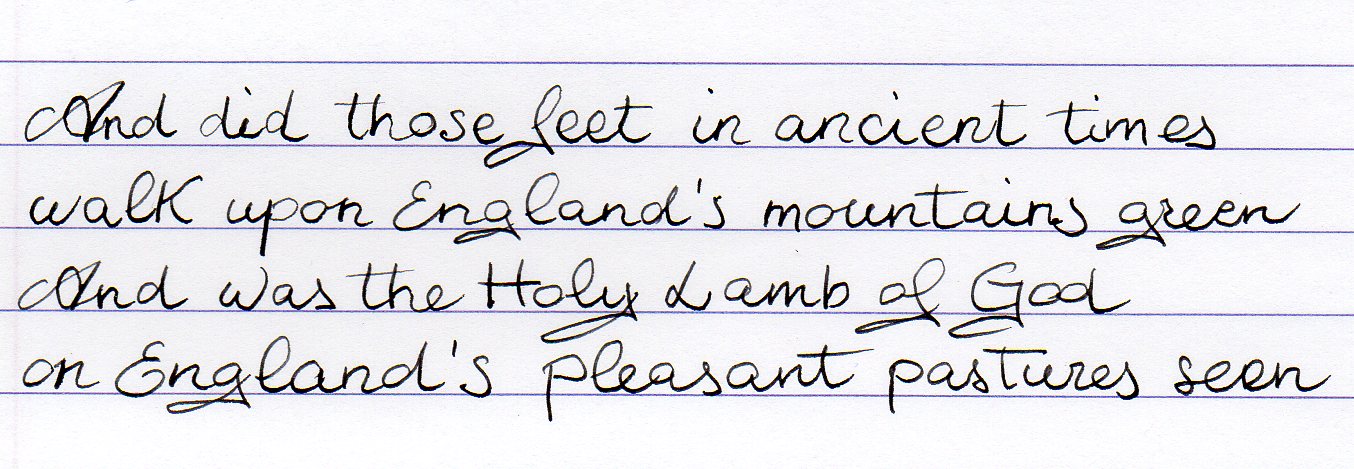 And did those feet in ancient times
walk upon England's mountains green
And was the Holy Lamb of God
on England's pleasant pastures seen